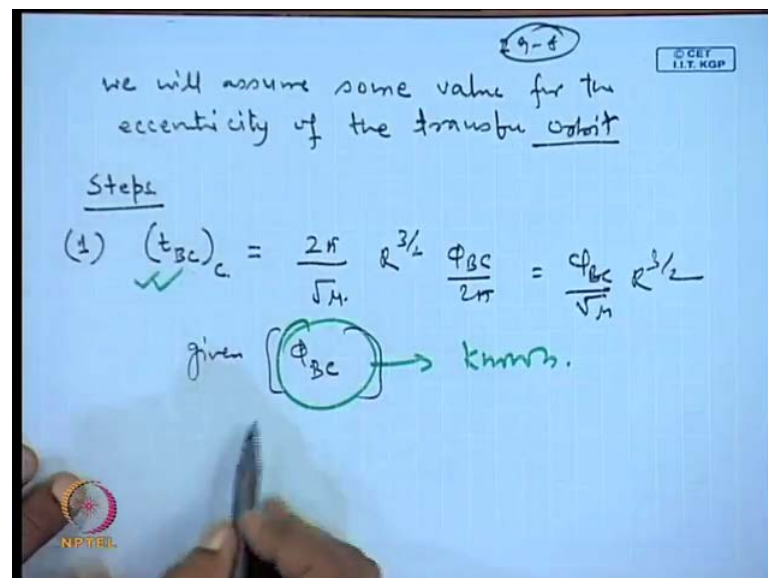 29-8
© CET
I.I.T. KGP
we will assume some value for the
eccentricity of the transfer orbit
Steps
(1) (t_BC)_C = 2π/√μ R^3/2 Φ_BC/2π = Φ_BC/√μ R^3/2
given [Φ_BC] → known.
NPTEL